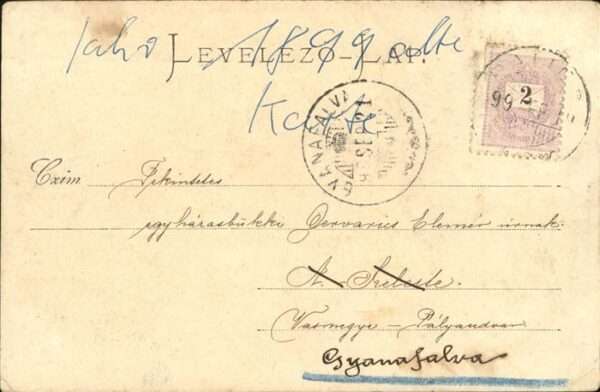 Jahr 1899 alte
LEVELEZŐ-LAP.
Karte
2
99
GYANAFALVA
Czím Tekintetes
egyházasbükki Gervarics Elemér úrnak.
N. Szeleste.
Vasmegye – Pályaudvar
Gyanafalva